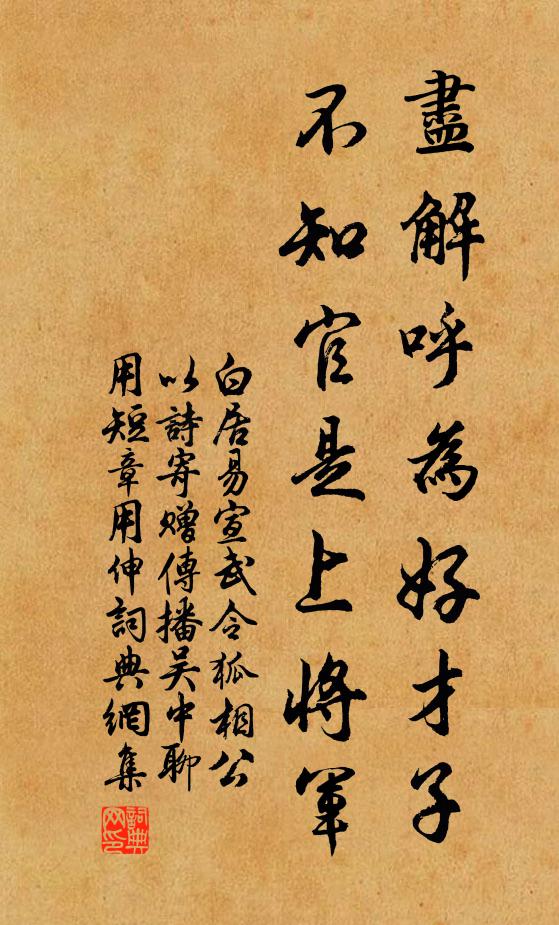 盡解呼為好才子
不知官是上將軍
白居易宣武令狐相公
以詩寄贈傳播吳中聊
用短章用伸詞典網集
詞典网印